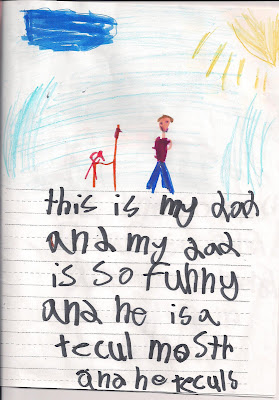 this is my dad
and my dad
is so funny
and he is a
tecul mostr
and he teculs